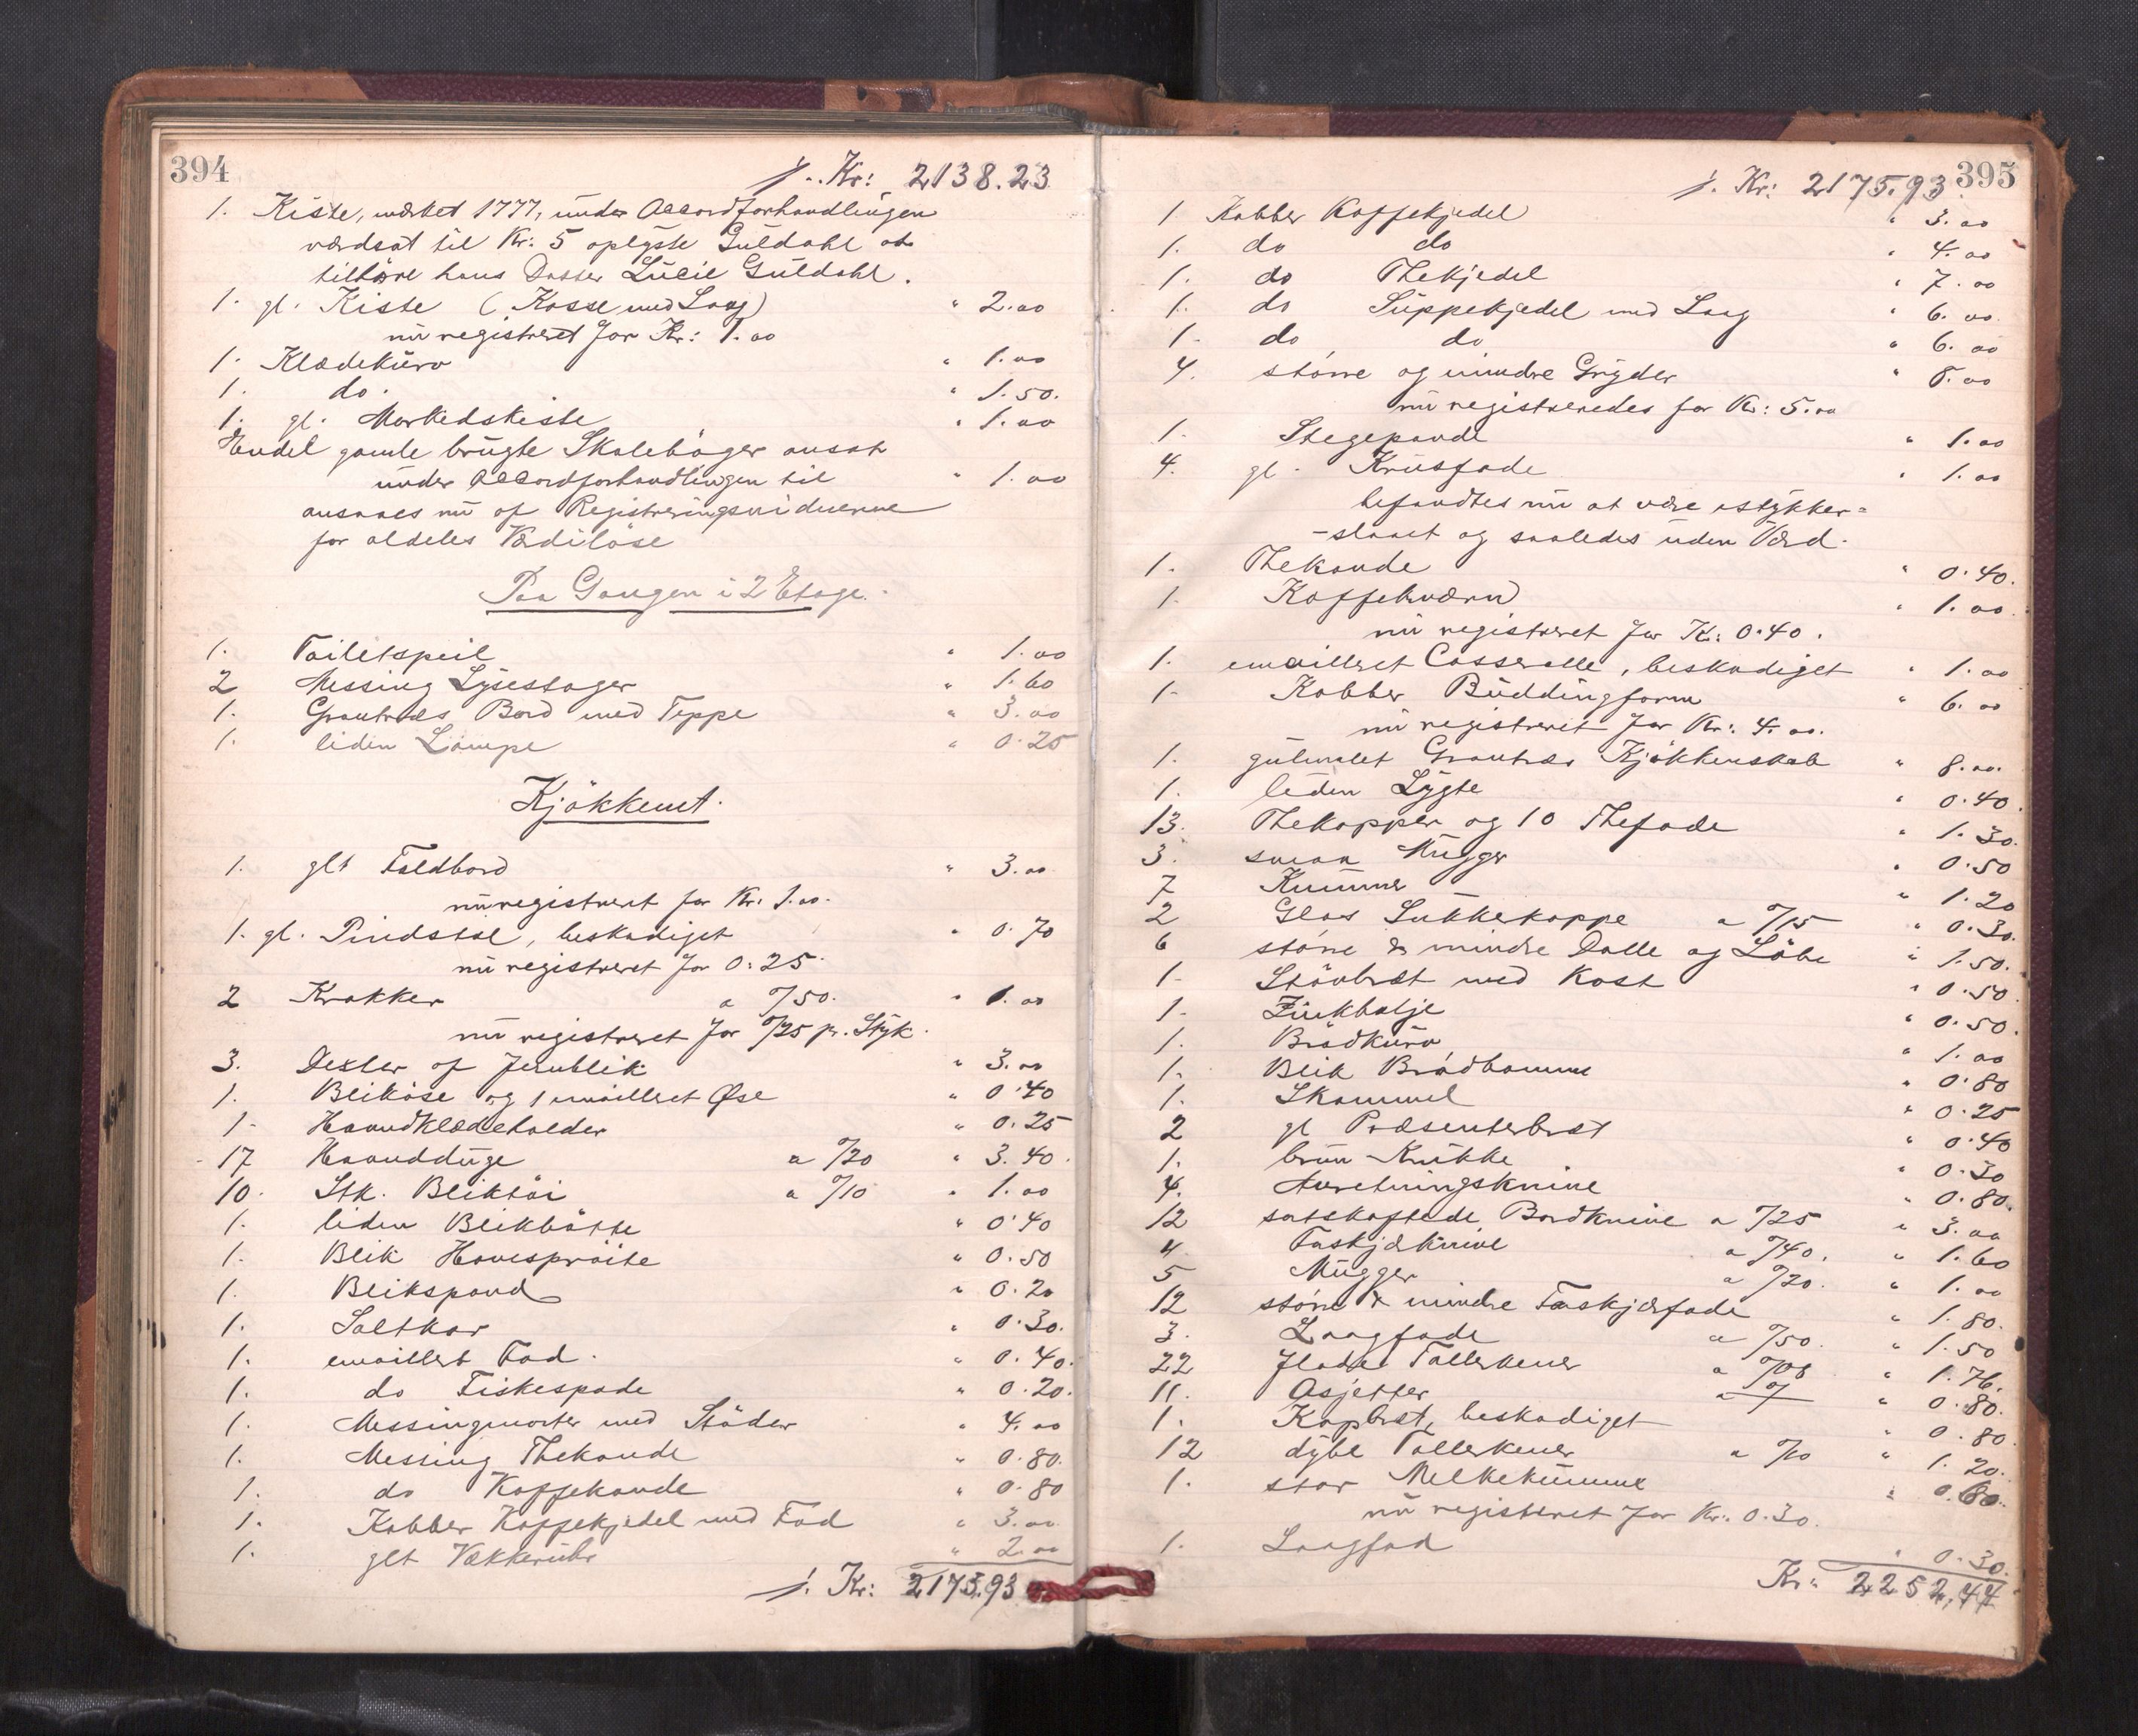 394
f. Kr: 2138.23
1. Kiste, mærket 1777, under Accordforhandlingen
værdsat til Kr: 5 oplyste Guldahl at
tilhøre hans Datter Lucie Guldahl.
1. gl. Kiste (Kasse med Laag) " 2.00
nu registreret for Kr: 1.00
1. Klædekurv " 1.00
1. do. " 1.50.
1. gl. Markedskiste " 1.00
Endel gamle brugte Skolebøger ansat
under Accordforhandlingen til " 1.00
ansaaes nu af Registreringsvidnerne
for aldeles Værdiløse
Paa Gangen i 2 Etage.
1. Toiletspeil " 1.00
2 Messing Lysestager " 1.60
1. Grantræs Bord med Teppe " 3.00
1. liden Lampe " 0.25
Kjøkkenet.
1. glt Foldbord " 3.00
nu registreret for Kr. 1.00.
1. gl. Pindstol, beskadiget " 0.70
nu registreret for 0.25.
2 Krakker a %50. " 1.00
nu registreret for %25 pr. Styk.
3. Dexler af Jernblik " 3.00
1. Blikøse og 1 emailleret Øse " 0.40
1. Haandklædeholder " 0.25
17 Haandduge a %20 " 3.40.
10. Stk. Bliktøi a %10 " 1.00
1. liden Blikbøtte " 0.40
1. Blik Havesprøite " 0.50
1. Blikspand " 0.20
1. Saltkar " 0.30.
1. emaillert Fad. " 0.40.
1. do Fiskespade " 0.20.
1. Messingmorter med Støder " 4.00
1. Messing Thekande " 0.80.
1. do Kaffekande " 0.80
1. Kobber Kaffekjedel med Fad " 3.00.
1. glt Vækkeruhr " 2.00
f. Kr: 2175.93
395
f. Kr: 2175.93
1 Kobber Kaffekjedel " 3.00
1. do do " 4.00
1. do Thekjedel " 7.00
1. do Suppekjedel med Laag " 6.00
1. do do " 6.00
4. større og mindre Gryder " 8.00
nu registreredes for Kr: 5.00
1. Stegepande " 1.00
4. gl. Krusfade " 1.00
befandtes nu at være istykker=
-slaaet og saaledes uden Værd.
1. Thekande " 0.40.
1. Kaffekværn " 1.00
nu registreret for Kr: 0.40.
1. emailleret Casserolle, beskadiget " 1.00
1. Kobber Buddingform " 6.00
nu registreret for Kr: 4.00.
1. gulmalet Grantræs Kjøkkenskab " 8.00.
1. liden Lygte " 0.40.
13. Thekopper og 10 Thefade " 1.30.
3. smaa Mugger " 0.50
7 Kummer " 1.20
2 Glas Sukkekoppe a %15 " 0.30.
6 større & mindre Dalle og Løbe " 1.50.
1. Støvbræt med Kost " 0.50.
1. Zinkbalje " 0.50.
1. Brødkurv " 1.00
1. Blik Brødbomme " 0.80
1. Skammel " 0.25
2 gl Præsenterbræt " 0.40
1. brun Krukke " 0.30
4. Anretningsknive " 0.80.
12 sortskaftede Bordknive a %25 " 3.00
4 Forskjærknive a %40. " 1.60
5 Mugger a %20. " 1.00
12 større & mindre Forskjærfade " 1.80.
3. Laagfade a %50. " 1.50
22 flade Tallerkener a %08 " 1.76.
11. Asjetter " 0.80.
1. Kopbræt, beskadiget " 0.80
12 dybe Tallerkener a %10 " 1.20.
1. stor Melkekumme " 0.60.
nu registreret for Kr: 0.30.
1. Laagfad " 0.30.
Kr: 2252,44